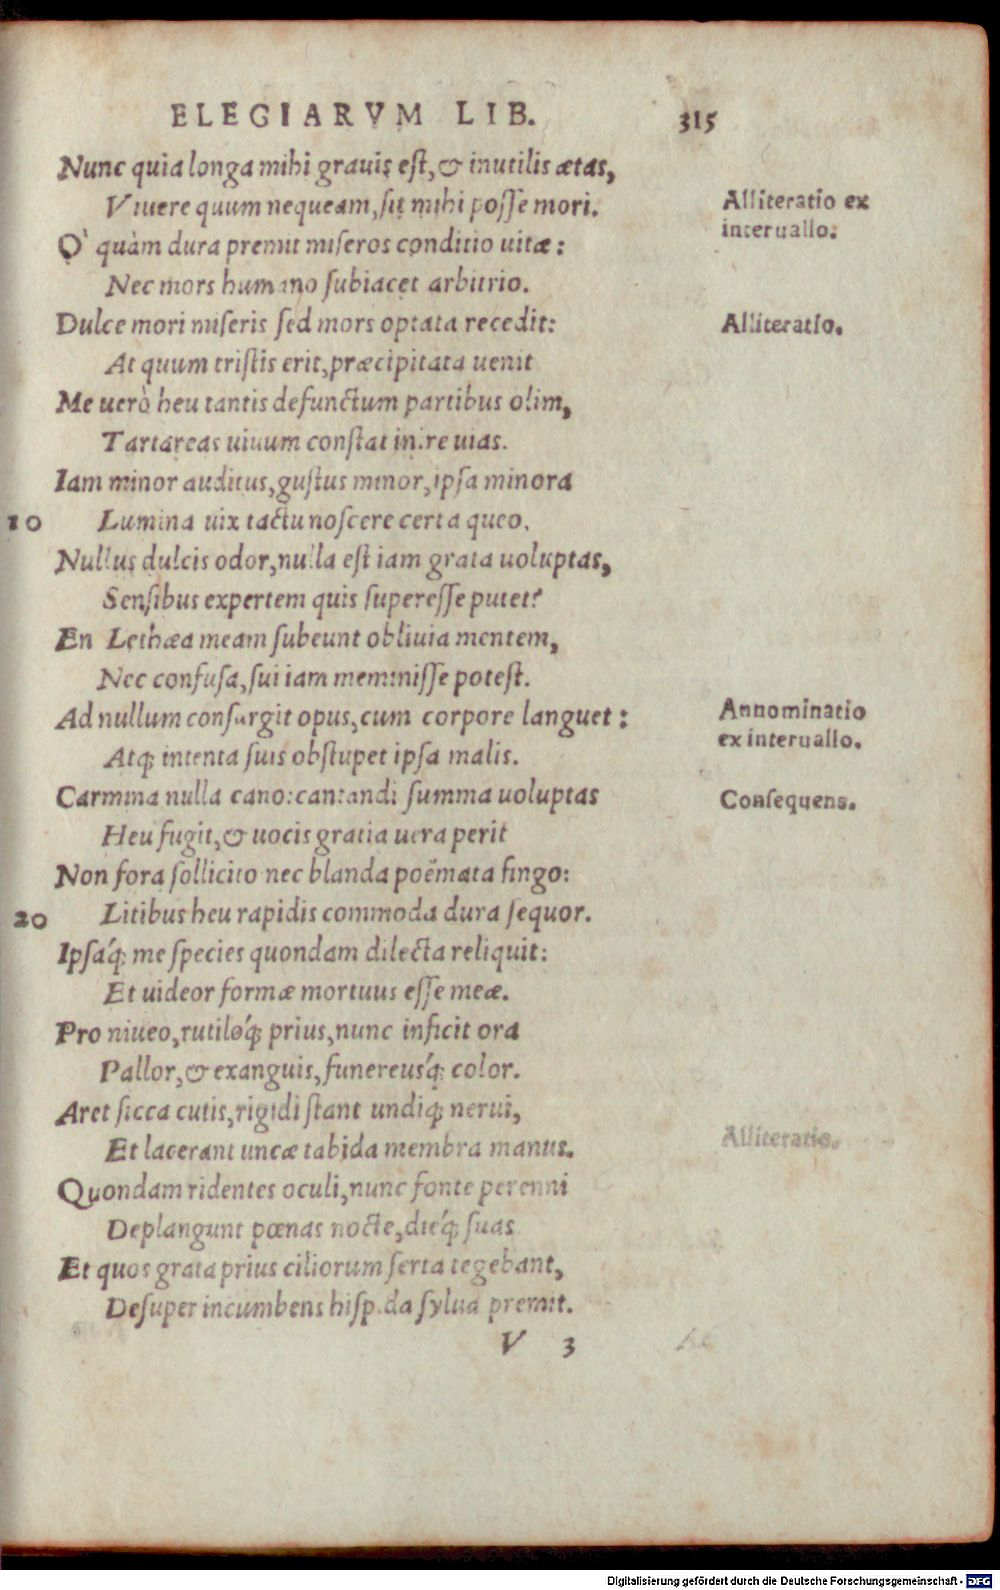 ELEGIARVM LIB. 315
Nunc quia longa mihi grauis est, & inutilis ætas,
Viuere quum nequeam, sit mihi posse mori.
Alliteratio ex
interuallo.
O` quàm dura premit miseros conditio uitæ:
Nec mors humano subiacet arbitrio.
Dulce mori miseris sed mors optata recedit:
Alliteratio.
At quum tristis erit, præcipitata uenit
Me uerò heu tantis defunctum partibus olim,
Tartareas uiuum constat inire uias.
Iam minor auditus, gustus minor, ipsa minora
10 Lumina uix tactu noscere certa queo.
Nullus dulcis odor, nulla est iam grata uoluptas,
Sensibus expertem quis superesse putet?
En Lethæa meam subeunt obliuia mentem,
Nec confusa, sui iam meminisse potest.
Ad nullum consurgit opus, cum corpore languet:
Annominatio
ex interuallo.
Atq; intenta suis obstupet ipsa malis.
Carmina nulla cano: cantandi summa uoluptas
Consequens.
Heu fugit, & uocis gratia uera perit
Non fora sollicito nec blanda poëmata fingo:
20 Litibus heu rapidis commoda dura sequor.
Ipsáq; me species quondam dilecta reliquit:
Et uideor formæ mortuus esse meæ.
Pro niueo, rutilóq; prius, nunc inficit ora
Pallor, & exanguis, funereusq́; color.
Aret sicca cutis, rigidi stant undiq; nerui,
Et lacerant uncæ tabida membra manus.
Alliteratio.
Quondam ridentes oculi, nunc fonte perenni
Deplangunt pœnas nocte, diéq; suas
Et quos grata prius ciliorum serta tegebant,
Desuper incumbens hispida sylua premit.
V 3
Digitalisierung gefördert durch die Deutsche Forschungsgemeinschaft - DFG